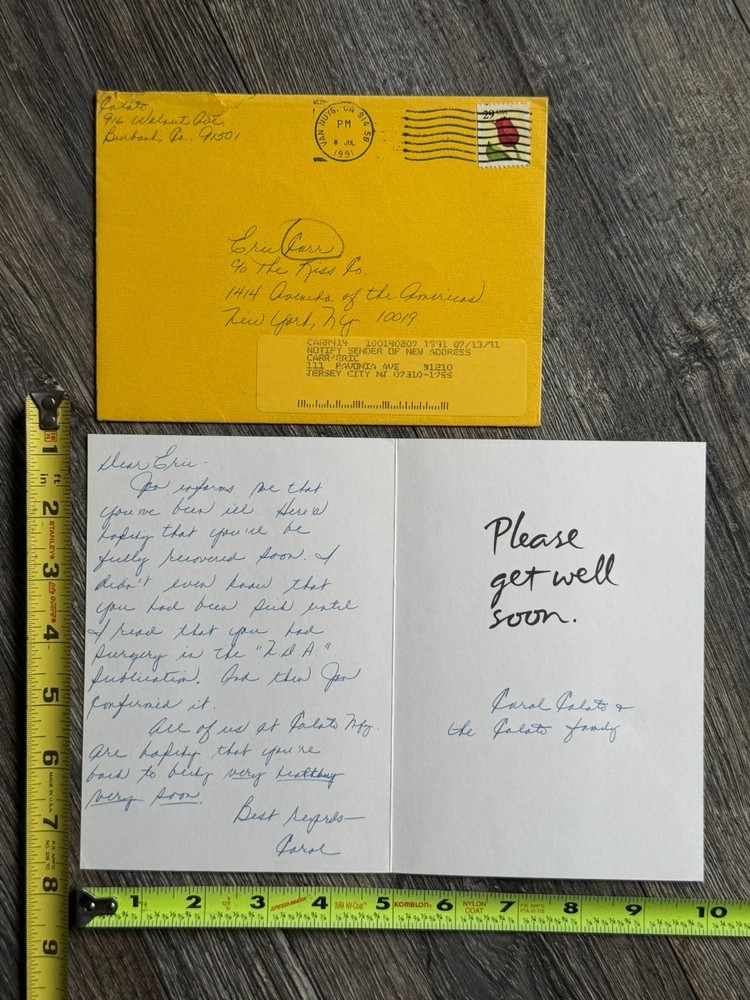 Calato
916 Walnut Ave.
Burbank, Ca. 91501
VAN NUYS, CA 914
PM
JUL
1991
29
Eric Carr
c/o The Kiss Co.
1414 Avenida of the Americas
New York, Ny 10019
CARR414 100190207 1591 07/13/91
NOTIFY SENDER OF NEW ADDRESS
CARR'ERIC
111 PAVONIA AVE 91210
JERSEY CITY NJ 07310-1755
Dear Eric-
Jon informs me that
you've been ill. Here's
hoping that you'll be
fully recovered soon. I
didn't even know that
you had been sick until
I read that you had
surgery in the
Publication. And then Jon
confirmed it.
All of us at Calato Mfg.
are hoping that you're
back to being very healthy
very soon.
Best regards-
Carol
Please
get well
soon.
Carol Calato &
the Calato family
1 2 3 4 5 6 7 8 9
in ft
STANLEY
MADE IN U.S.A.
1 2 3 4 5 6 7 8 9 10
SPEEDMARK
DURA NY-Coat
KOMELON
NYLON
COAT